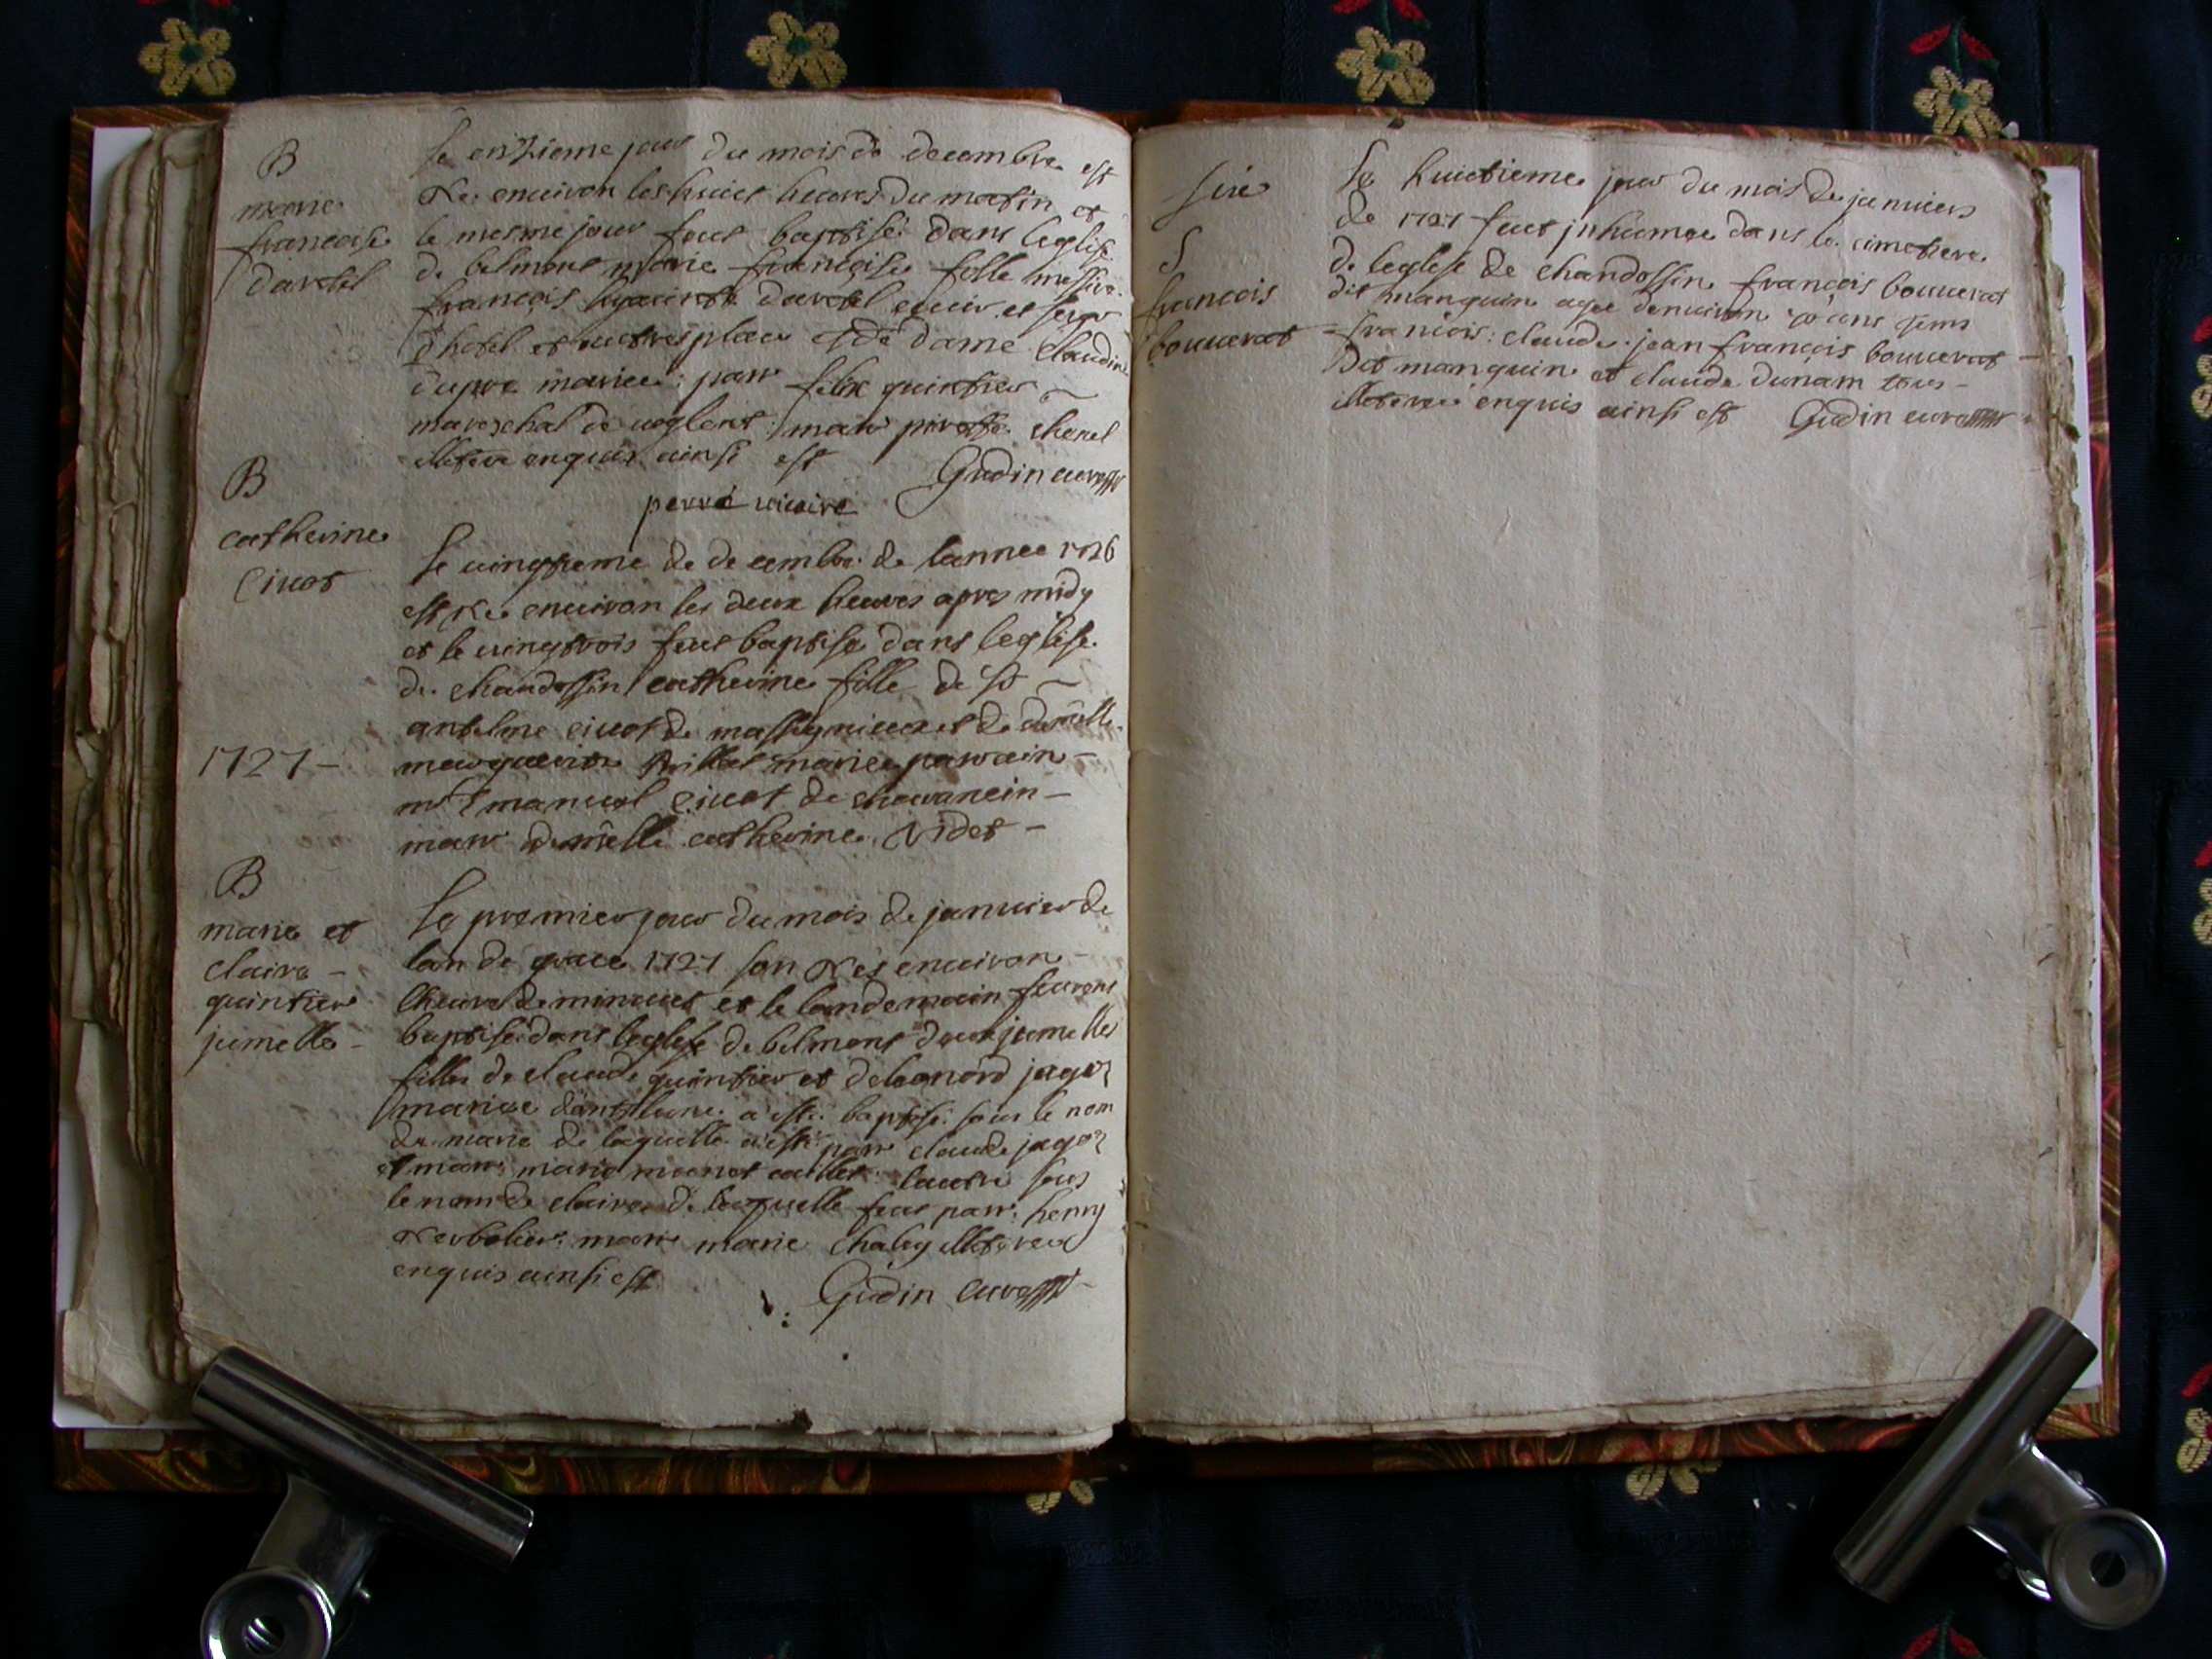 B
marie
francoise
dartel
Le onzieme jour du mois de decembre est
Née enuiron les huict heures du matin et
le mesme jour fut baptisé dans leglise
de belmont marie françoise fille messire
françois hyacinte dartel ecuier et segr
dhotel et autres places et de dame Claudine
dupra mariée parr felix quintier
mareschal de uoglent marr pirette chanel
illeterée enquis ainsi est Gudin curé
perré uicaire
B
catherine
Ciuot
Le uingtieme de decembre de lannee 1726
est Née enuiron les deux heures apres midy
et le uingtrois fut baptisé dans leglise
de chandossin catherine fille de sr
antelme ciuot de massignieux et de demelle
marguerite Trillet mariée parrain
mr Emanuel Ciuot de chauanein
marr demelle catherine Nidet
1727
B
marie et
claire
quintier
jumelle
Le premier jour du mois de januier de
lan de grace 1727 son Nées enuiron
lheure de minuict et le landemain furent
baptisé dans leglise de belmont deux jumelle
filles de claude quintier et deleonord jagoz
mariée dont lune a esté baptisé sous le nom
de marie de laquelle a esté parr claude jagoz
et marr marie monet caillet lautre sous
le nom de claire de laquelle fut parr henry
Nerbolier marr marie chaley illeterée
enquis ainsi est Gudin curé
sire
S
francois
bouuerat
Le huictieme jour du mois de januier
de 1727 fut inhumée dans le cimetiere
de leglise de chandossin françois bouuerat
dit manguin agée denuiron ans
francois claude jean françois bouuerat
dit manguin et claude dunam tous
illeterée enquis ainsi est Gudin curé